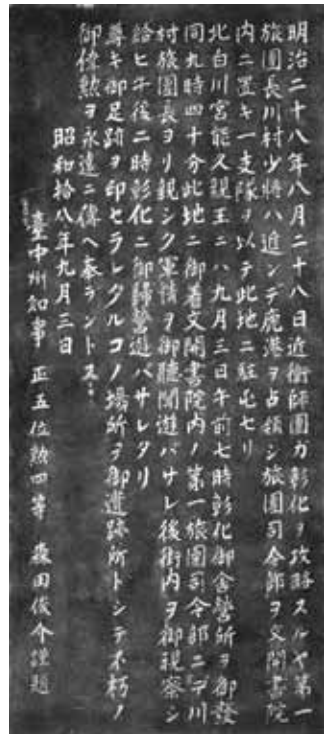 明治二十八年八月二十八日近衛師團カ彰化ヲ攻略スルヤ第一
旅團長川村少將ハ進ンデ鹿港ヲ占領シ旅團司令部ヲ文開書院
内ニ置キ一支隊ヲ以テ此地ニ駐屯セリ
北白川宮能久親王ニハ九月三日午前七時彰化御舍營所ヲ御發
同九時四十分此地ニ御着文開書院内ノ第一旅團司令部ニテ川
村旅團長ヨリ親シク軍情ヲ御聽聞遊バサレ後街内ヲ御視察シ
給ヒ午後二時彰化ニ御歸營遊バサレタリ
尊キ御足跡ヲ印セラレタルコノ場所ヲ御遺跡所トシテ不朽ノ
御偉勲ヲ永遠ニ傳ヘ奉ラントス
昭和拾八年九月三日
臺中州知事 正五位勲四等 森田俊介謹題